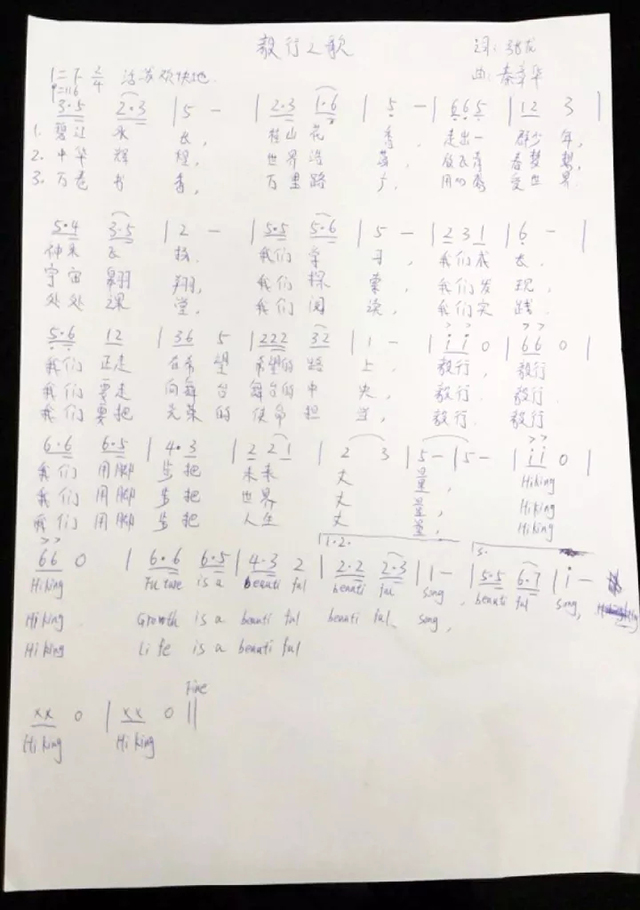 毅行之歌
词:
1=F 2/4 活泼欢快地
曲:秦亭华
3·5 2·3 | 5 - | 2·3 1·6 | 5 - | 6 6 5 | 1 2 3 |
1. 水长, 桂山花香, 走出一群少年,
2. 中华辉煌, 世界
3. 万卷书香, 万里路 世界
5·4 3·5 | 2 - | 5·5 5·6 | 5 - | 2 3 1 | 6 - |
神采飞扬 我们学习, 我们成长,
宇宙翱翔, 我们探索, 我们发现,
处处课堂, 我们阅读, 我们实践
5·6 12 | 36 5 | 222 32 | 1 - | i i 0 | 66 0 |
我们正走在希望希望的路上, 毅行, 毅行
我们要走向舞台舞台的中央, 毅行, 毅行
我们要把光荣的使命担当, 毅行, 毅行
6·6 6·5 | 4·3 | 2 2 1 | 2 3 | 5 - | 5 - | i i 0 |
我们用脚步把未来丈量, Hiking
我们用脚步把世界丈量, Hiking
我们用脚步把人生丈量, Hiking
1.2. 3.
66 0 | 6·6 6·5 | 4·3 2 | 2·2 2·3 | 1 - | 5·5 6·7 | i -
Hiking Future is a beautiful beautiful song, beautiful song,
Hiking Growth is a beautiful beautiful song,
Hiking Life is a beautiful
Fine
xx 0 | xx 0 ||
Hiking Hiking